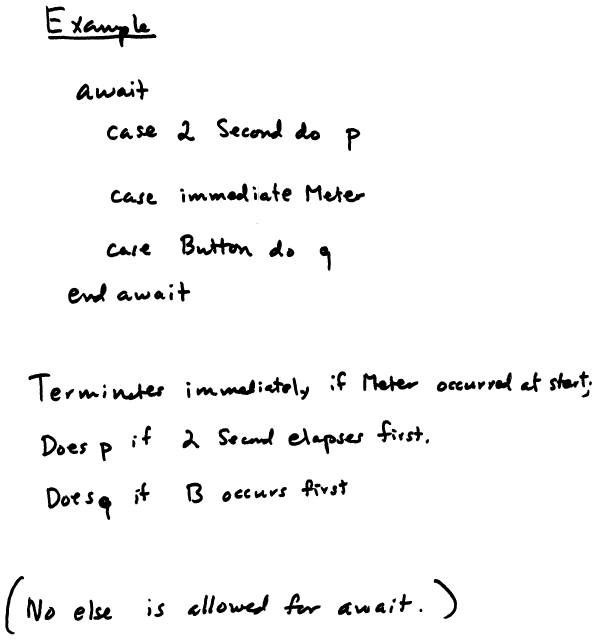 Example
await
case 2 Second do p
case immediate Meter
case Button do q
end await
Terminates immediately if Meter occurred at start;
Does p if 2 Second elapses first.
Does q if B occurs first
(No else is allowed for await.)